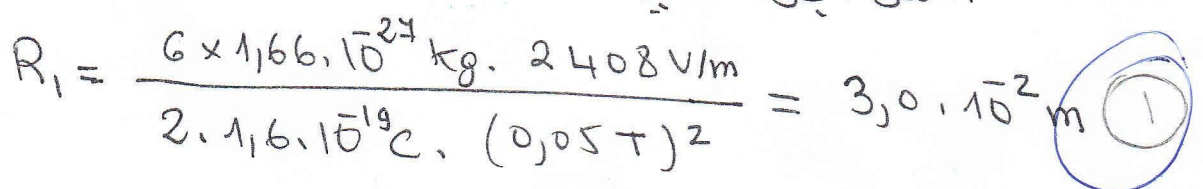 R₁ = \frac{6 × 1,66. 10⁻²⁷ kg. 2408 V/m}{2. 1,6. 10⁻¹⁹ C. (0,05 T)²} = 3,0. 10⁻² m ①